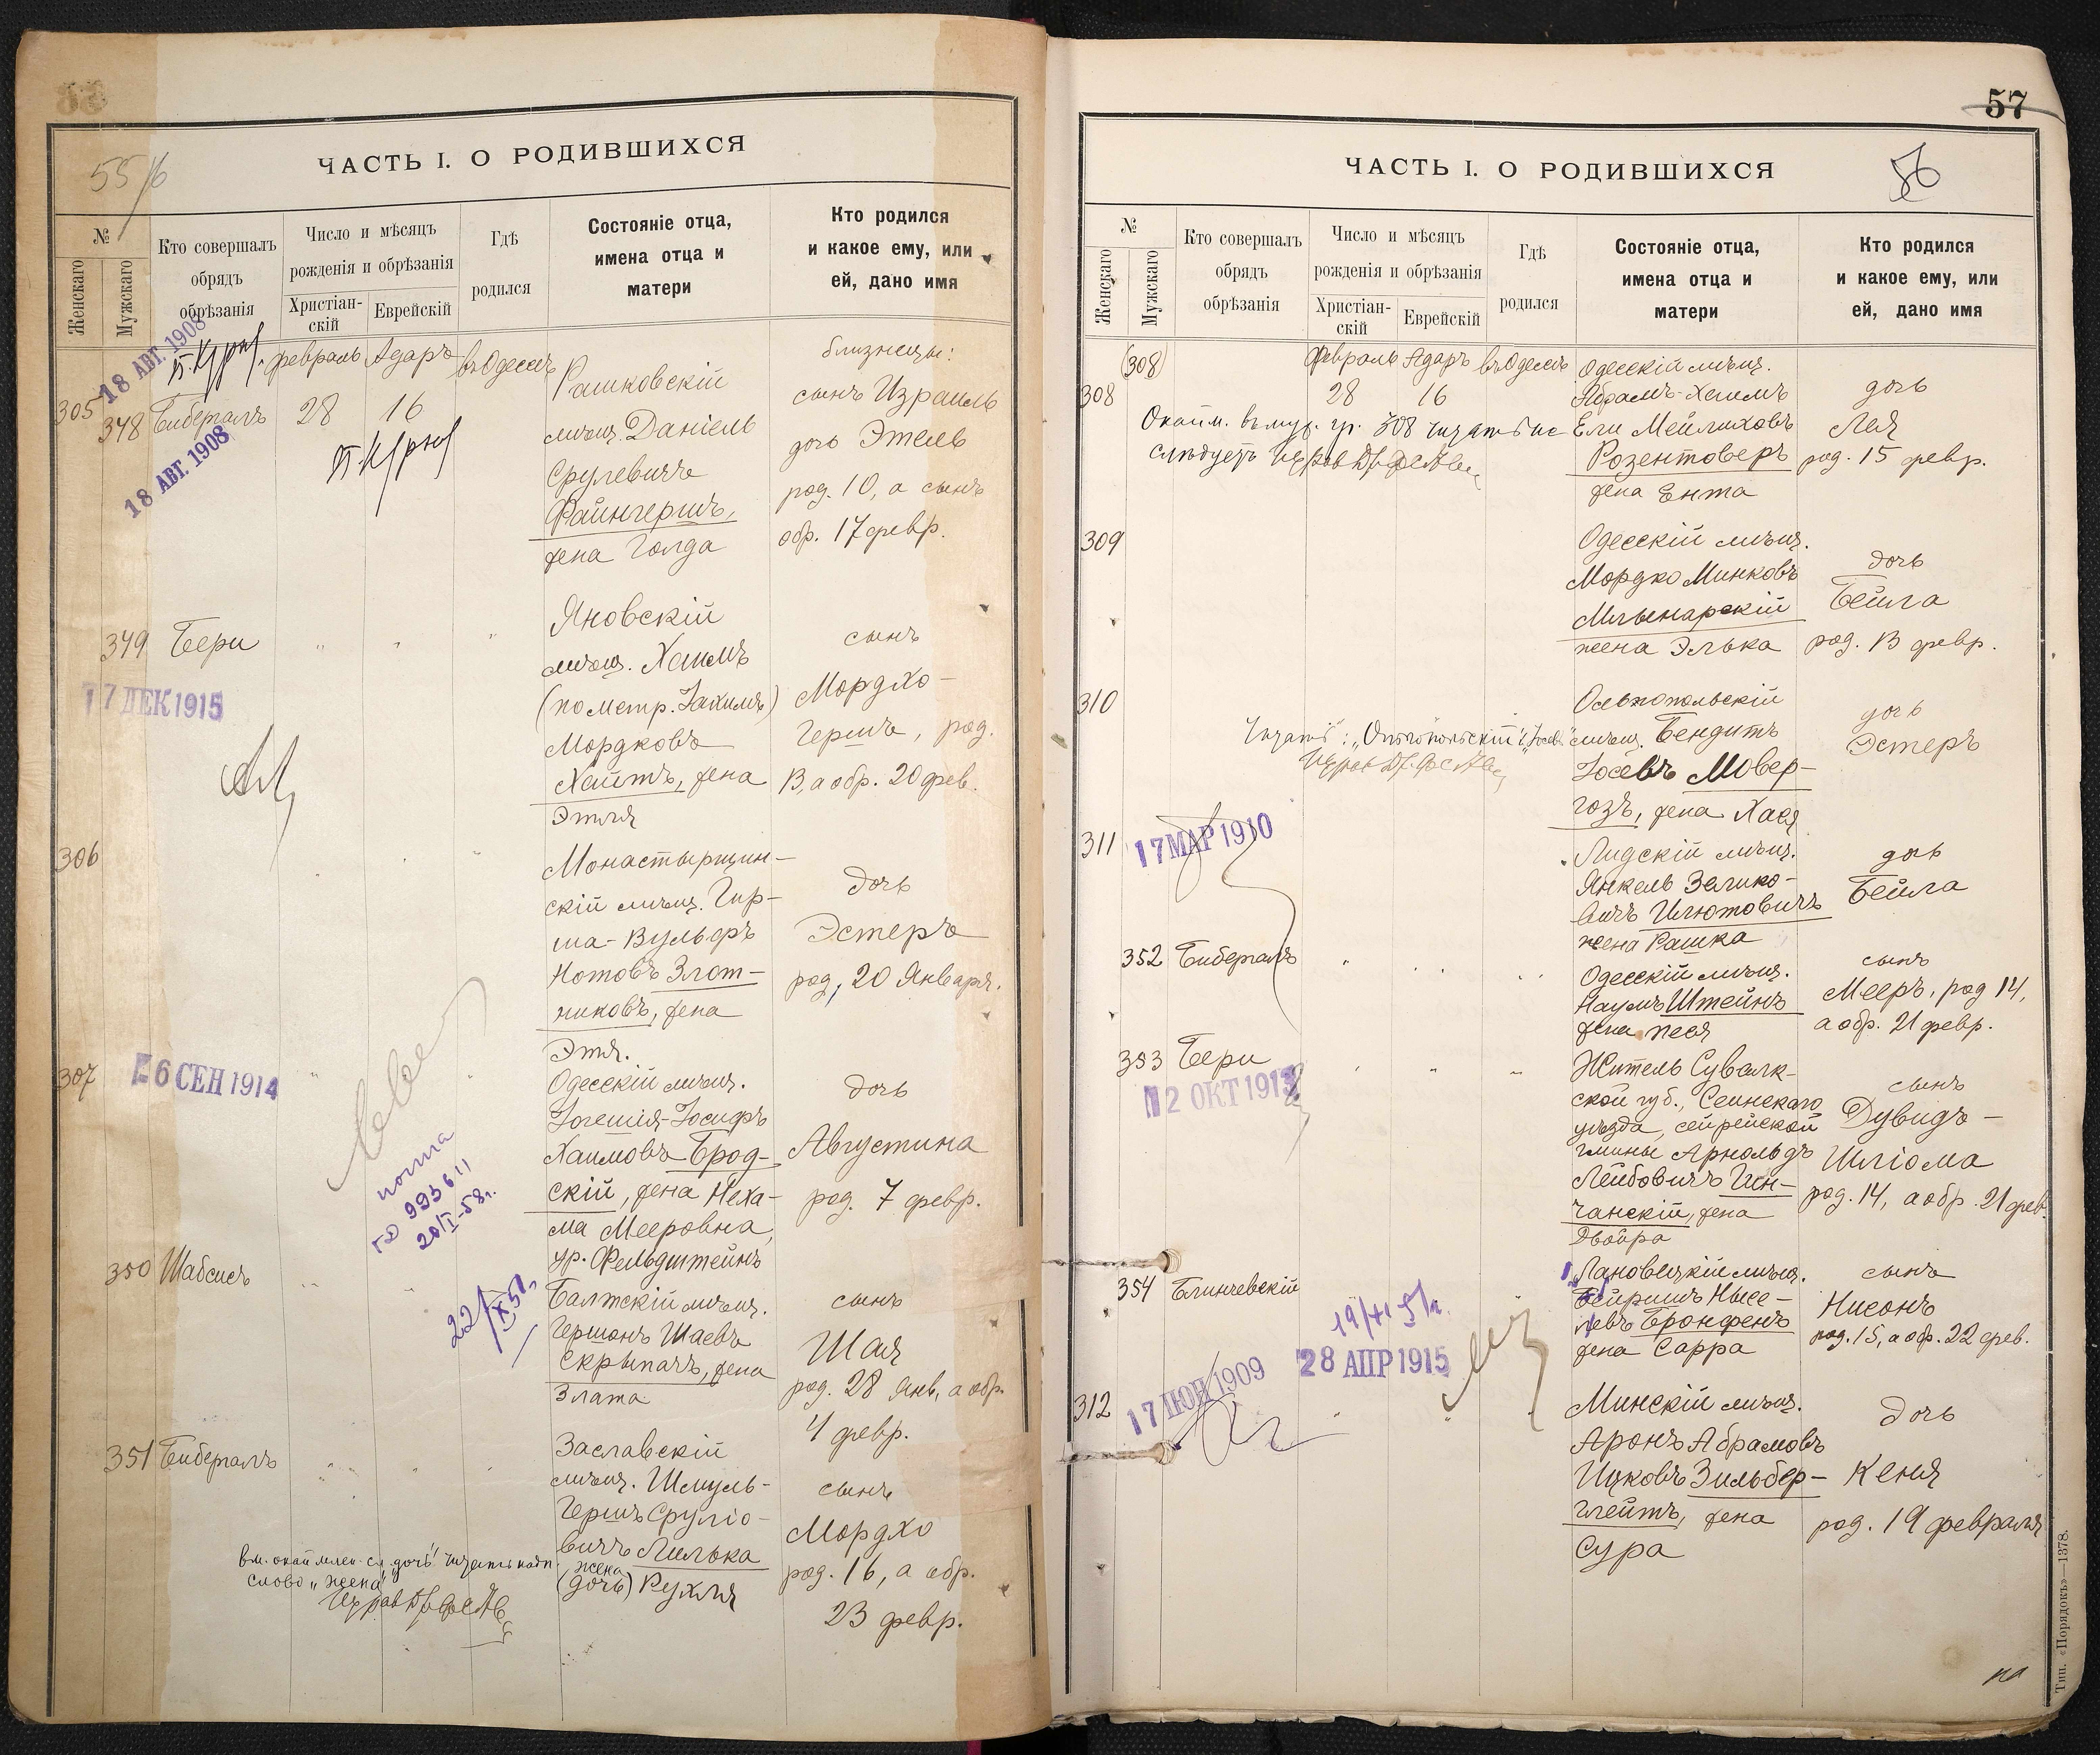 55/6
ЧАСТЬ I. О РОДИВШИХСЯ
№
Женскаго
Мужскаго
Кто совершалъ
обрядъ
обрѣзанія
Число и мѣсяцъ
рожденія и обрѣзанія
Христіан-
скій
Еврейскій
Гдѣ
родился
Состояніе отца,
имена отца и
матери
Кто родился
и какое ему, или
ей, дано имя
18 АВГ. 1908
18 АВГ. 1908
305
348
Бибергалъ
февраль Адаръ въ Одессѣ
28 16
Рашковскій
мѣщ. Даніель
Срулевичъ
Файнгершъ,
жена Голда
близнецы:
сынъ Израиль
дочь Этель
род. 10, а сынъ
обр. 17 февр.
349 Бери
17 ДЕК 1915
Яновскій
мѣщ. Хаимъ
(по метр. Іахимъ)
Мордковъ
Хаитъ, жена
Этля
сынъ
Мордхо-
Гершъ, род.
13, а обр. 20 фев.
306
Монастырщин-
скій мѣщ. Гир-
ша-Вульфъ
Нотовъ Злот-
никовъ, жена
Этя.
дочь
Эстеръ
род. 20 Января.
307
6 СЕН 1914
Одесскій мѣщ.
Іогешія-Іосифъ
Хаимовъ Брод-
скій, жена Неха-
ма Мееровна,
ур. Фельдштейнъ
дочь
Августина
род. 7 февр.
993611
20/I-58г.
350 Шабсисъ
22/X51г.
Балтскій мѣщ.
Гершонъ Шаевъ
Скрыпачъ, жена
Злата
сынъ
Шая
род. 28 Янв, а обр.
4 февр.
351 Бибергалъ
Заславскій
мѣщ. Шмуль-
Гершъ Сруліо-
вичъ Лилька
жена
(дочь) Рухля
сынъ
Мордхо
род. 16, а обр.
23 февр.
слово „жена"
57
56
ЧАСТЬ I. О РОДИВШИХСЯ
№
Женскаго
Мужскаго
Кто совершалъ
обрядъ
обрѣзанія
Число и мѣсяцъ
рожденія и обрѣзанія
Христіан-
скій
Еврейскій
Гдѣ
родился
Состояніе отца,
имена отца и
матери
Кто родился
и какое ему, или
ей, дано имя
(308)
308
Февраль Адаръ въ Одессѣ
28 16
Одесскій мѣщ.
Абрамъ-Хаимъ
Ели Мейлиховъ
Розентоверъ
жена Ента
дочь
Лея
род. 15 февр.
309
Одесскій мѣщ.
Мордко Минковъ
Млынарскій
жена Элька
дочь
Бейла
род. 13 февр.
310
Ольвіопольскій
мѣщ. Бендитъ
Іосевъ Мовер-
гозъ, жена Хася
дочь
Эстеръ
311
17 МАР 1910
Лидскій мѣщ.
Янкель Зелико-
вичъ Илютовичъ
жена Рашка
дочь
Бейла
352 Бибергалъ
Одесскій мѣщ.
Наумъ Штейнъ
жена Песя
сынъ
Мееръ, род 14,
а обр. 21 февр.
353 Бери
12 ОКТ 191
Житель Сувалк-
ской губ., Сеинскаго
уѣзда, сейрейской
гмины Арнольдъ
Лейбовичъ Гин-
чанскій, жена
Двойра
сынъ
Дувидъ-
Шліома
род. 14, а обр. 21 фев.
354 Блинчевскій
28 АПР 1915
Лановецкій мѣщ.
Бейришъ Нысе-
левъ Бронфенъ
жена Сарра
сынъ
Нисонъ
род. 15, а обр. 22 фев.
312
17 ІЮН 1909
Минскій мѣщ.
Аронъ Абрамовъ
Ицковъ Зильбер-
глейтъ, жена
Сура
дочь
Кеня
род. 19 февраля
Тип. «Порядокъ»—1378.